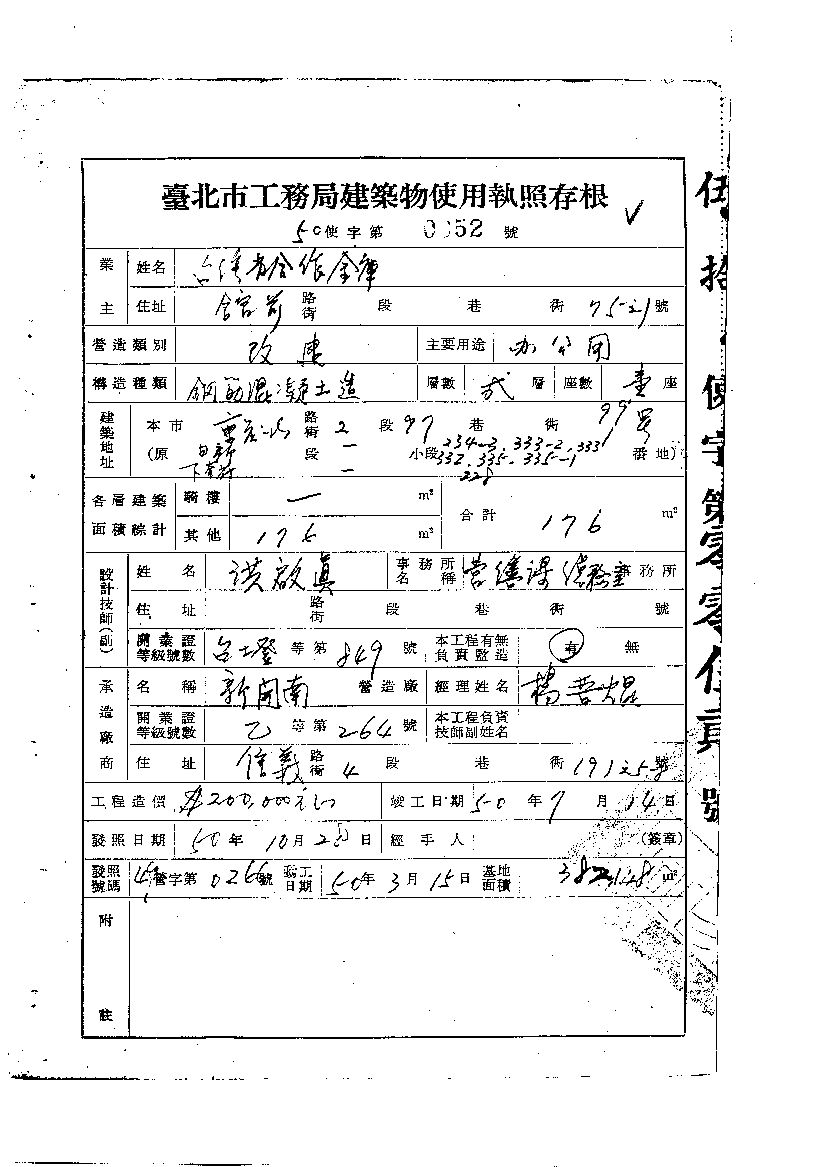 臺北市工務局建築物使用執照存根
50使字第 0052 號
業主 姓名 台灣省合作金庫
住址 館前 路街 段 巷 街 75-21 號
營造類別 改建 主要用途 办公用
構造種類 鋼筋混凝土造 層數 弍 層 座數 壹 座
建築地址 本市 路街 2 段 97 巷 街 99號
(原 段 一 小段 334-3. 333-2. 333 番地)
下 一 332. 335. 335-1
228
各層建築面積綜計 騎樓 一 m² 合計 176 m²
其他 176 m²
設計技師(副) 姓名 洪啟真 事務所名稱 營繕課 事務所
住址 路街 段 巷 街 號
開業證等級號數 台土登 等第 849 號 本工程有無負責監造 有 無
承造廠商 名稱 新開南 營造廠 經理姓名 楊
開業證等級號數 乙 等第 264 號 本工程負責技師副姓名
住址 信義 路街 4 段 巷 街 191-25號
工程造價 $200,000元 竣工日期 50 年 9 月 14 日
發照日期 50 年 10 月 28 日 經手人 (簽章)
發照號碼 營字第 0266 號 動工日期 50 年 3 月 15 日 基地面積 382.148 m²
附註
伍拾 使字第零零伍貳號